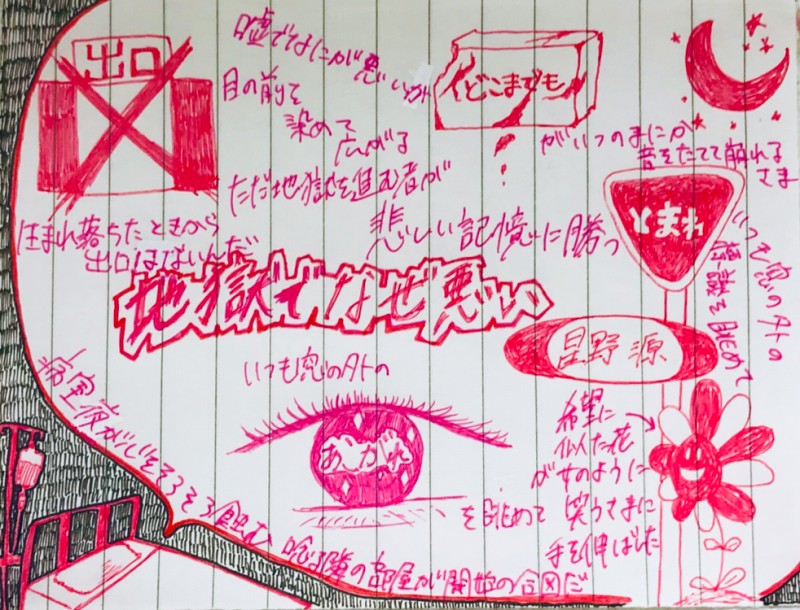 出口
嘘でなにが悪いか
目の前を
染めて
広がる
ただ地獄を進む者が
悲しい記憶に勝つ
どこまでも
がいつのまにか
音をたてて崩れる
さま
生まれ落ちたときから
出口はないんだ
とまれ
いつも窓の外の
標識を眺めて
地獄でなぜ悪い
星野源
いつも窓の外の
あこがれ
を眺めて
希望に
似た花
が女のように
笑うさまに
手を伸ばした
病室 夜が心をそろそろ蝕む
唸る隣の部屋が開始の合図だ